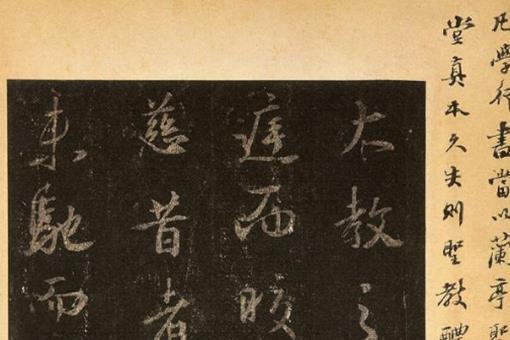 凡學行書當以蘭亭聖
堂真本久失則聖教體
大教之
遲西眺
慈昔者
東馳而